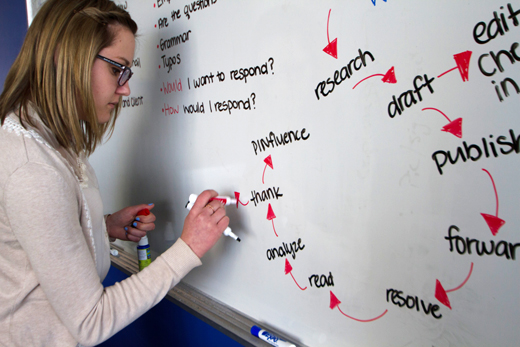 • Are the questions
• Grammar
• Typos
• Would I want to respond?
• How would I respond?
research
draft
edit
publish
forward
resolve
read
analyze
thank
pinfluence